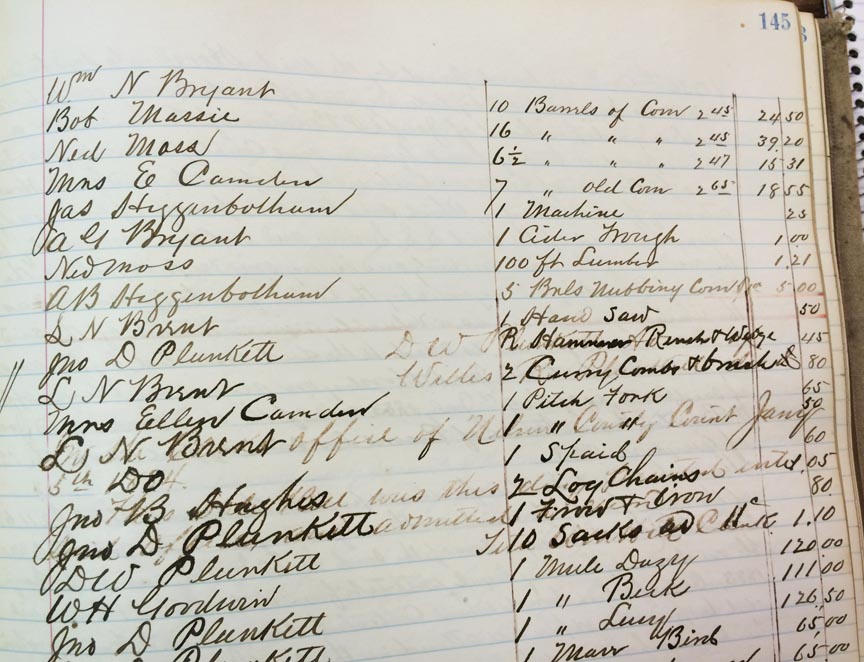 145
Wm N Bryant 10 Barrels of Corn 2 45 24 50
Bob Massie 16 " " " 2 45 39.20
Ned Moss 6 1/2 " " " 2 47 15 31
Mrs E Camden 7 " old Corn 2 65 18 55
Jas Higgenbotham 1 Machine 25
A G Bryant 1 Cider Trough 1 00
Ned Moss 100 ft Lumber 1.21
A B Higgenbotham 5 Brls Nubbing Corn 5.00
L N Brent 1 Hand Saw 50
Jno D Plunkett R Hammer Rench & Wedge 45
L N Brent 2 Curry Combs & brush 80
Mrs Ellen Camden 1 Pitch Fork 65
L N Brent 1 " " 50
Do 1 Spaid 60
Jno B Hughes 2 Log Chains 1 05
Jno D Plunkett 1 Frow & Iron 80
D W Plunkett 10 Sacks 11c 1.10
W H Goodwin 1 Mule Dazy 120 00
Jno D Plunkett 1 " Beck 111 00
Plunkett 1 " Lucy 126.50
1 Mare Bird 65,00
65 00
D W
Willis
office of County Court Jany
5th
was this
admitted